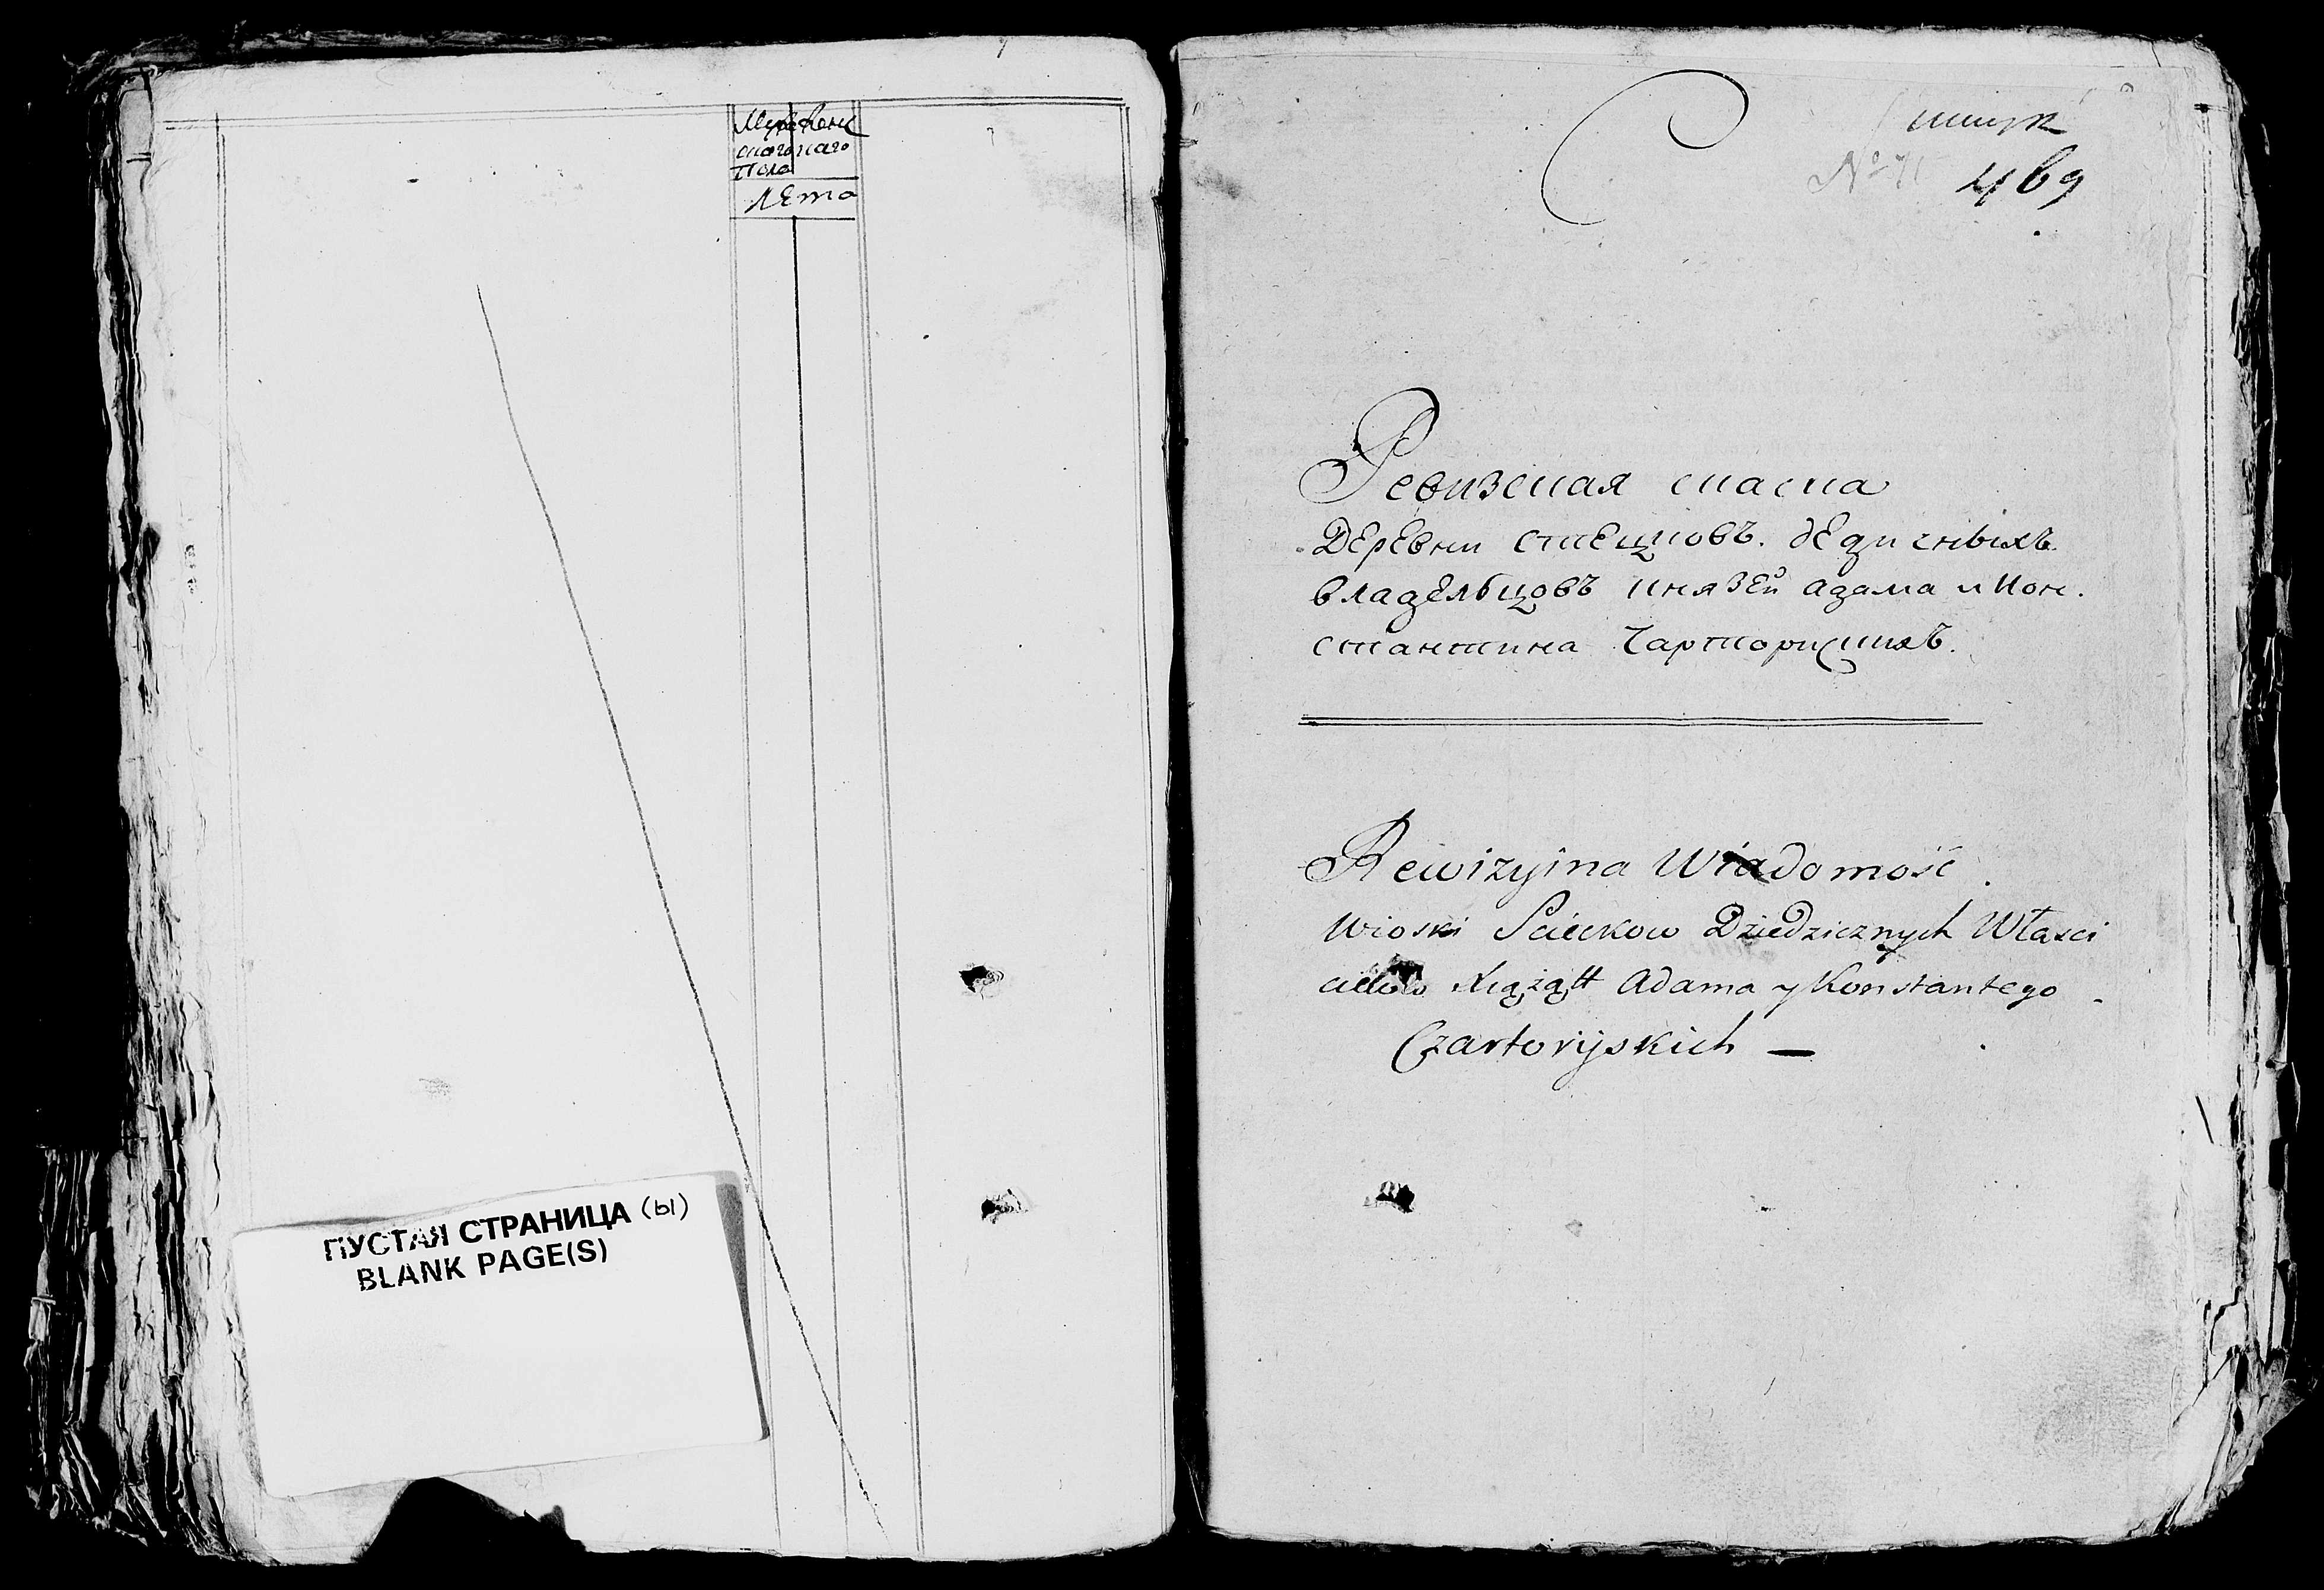 Мужеконс
скогоскаго
Пола
Лета
ПУСТАЯ СТРАНИЦА (ы)
BLANK PAGE(S)
№ 71
469
Ревизская скаска
Деревни Стецковъ. дедичныхъ
владельцовъ князей адама и Кон.
стантина Чарторискихъ.
Rewizyina Wiadomość
Wioski Scieckow Dziedzicznych Własci
cielow Xiążątt Adama y Konstantego
Czartoryskich —